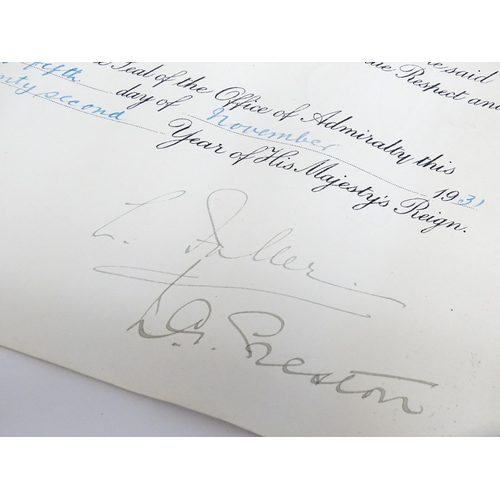 said
Respect and
fifth
Seal of the Office of Admiralty this
day of November 1931
second
Year of His Majesty's Reign.
L. Fuller.
L. G. Preston